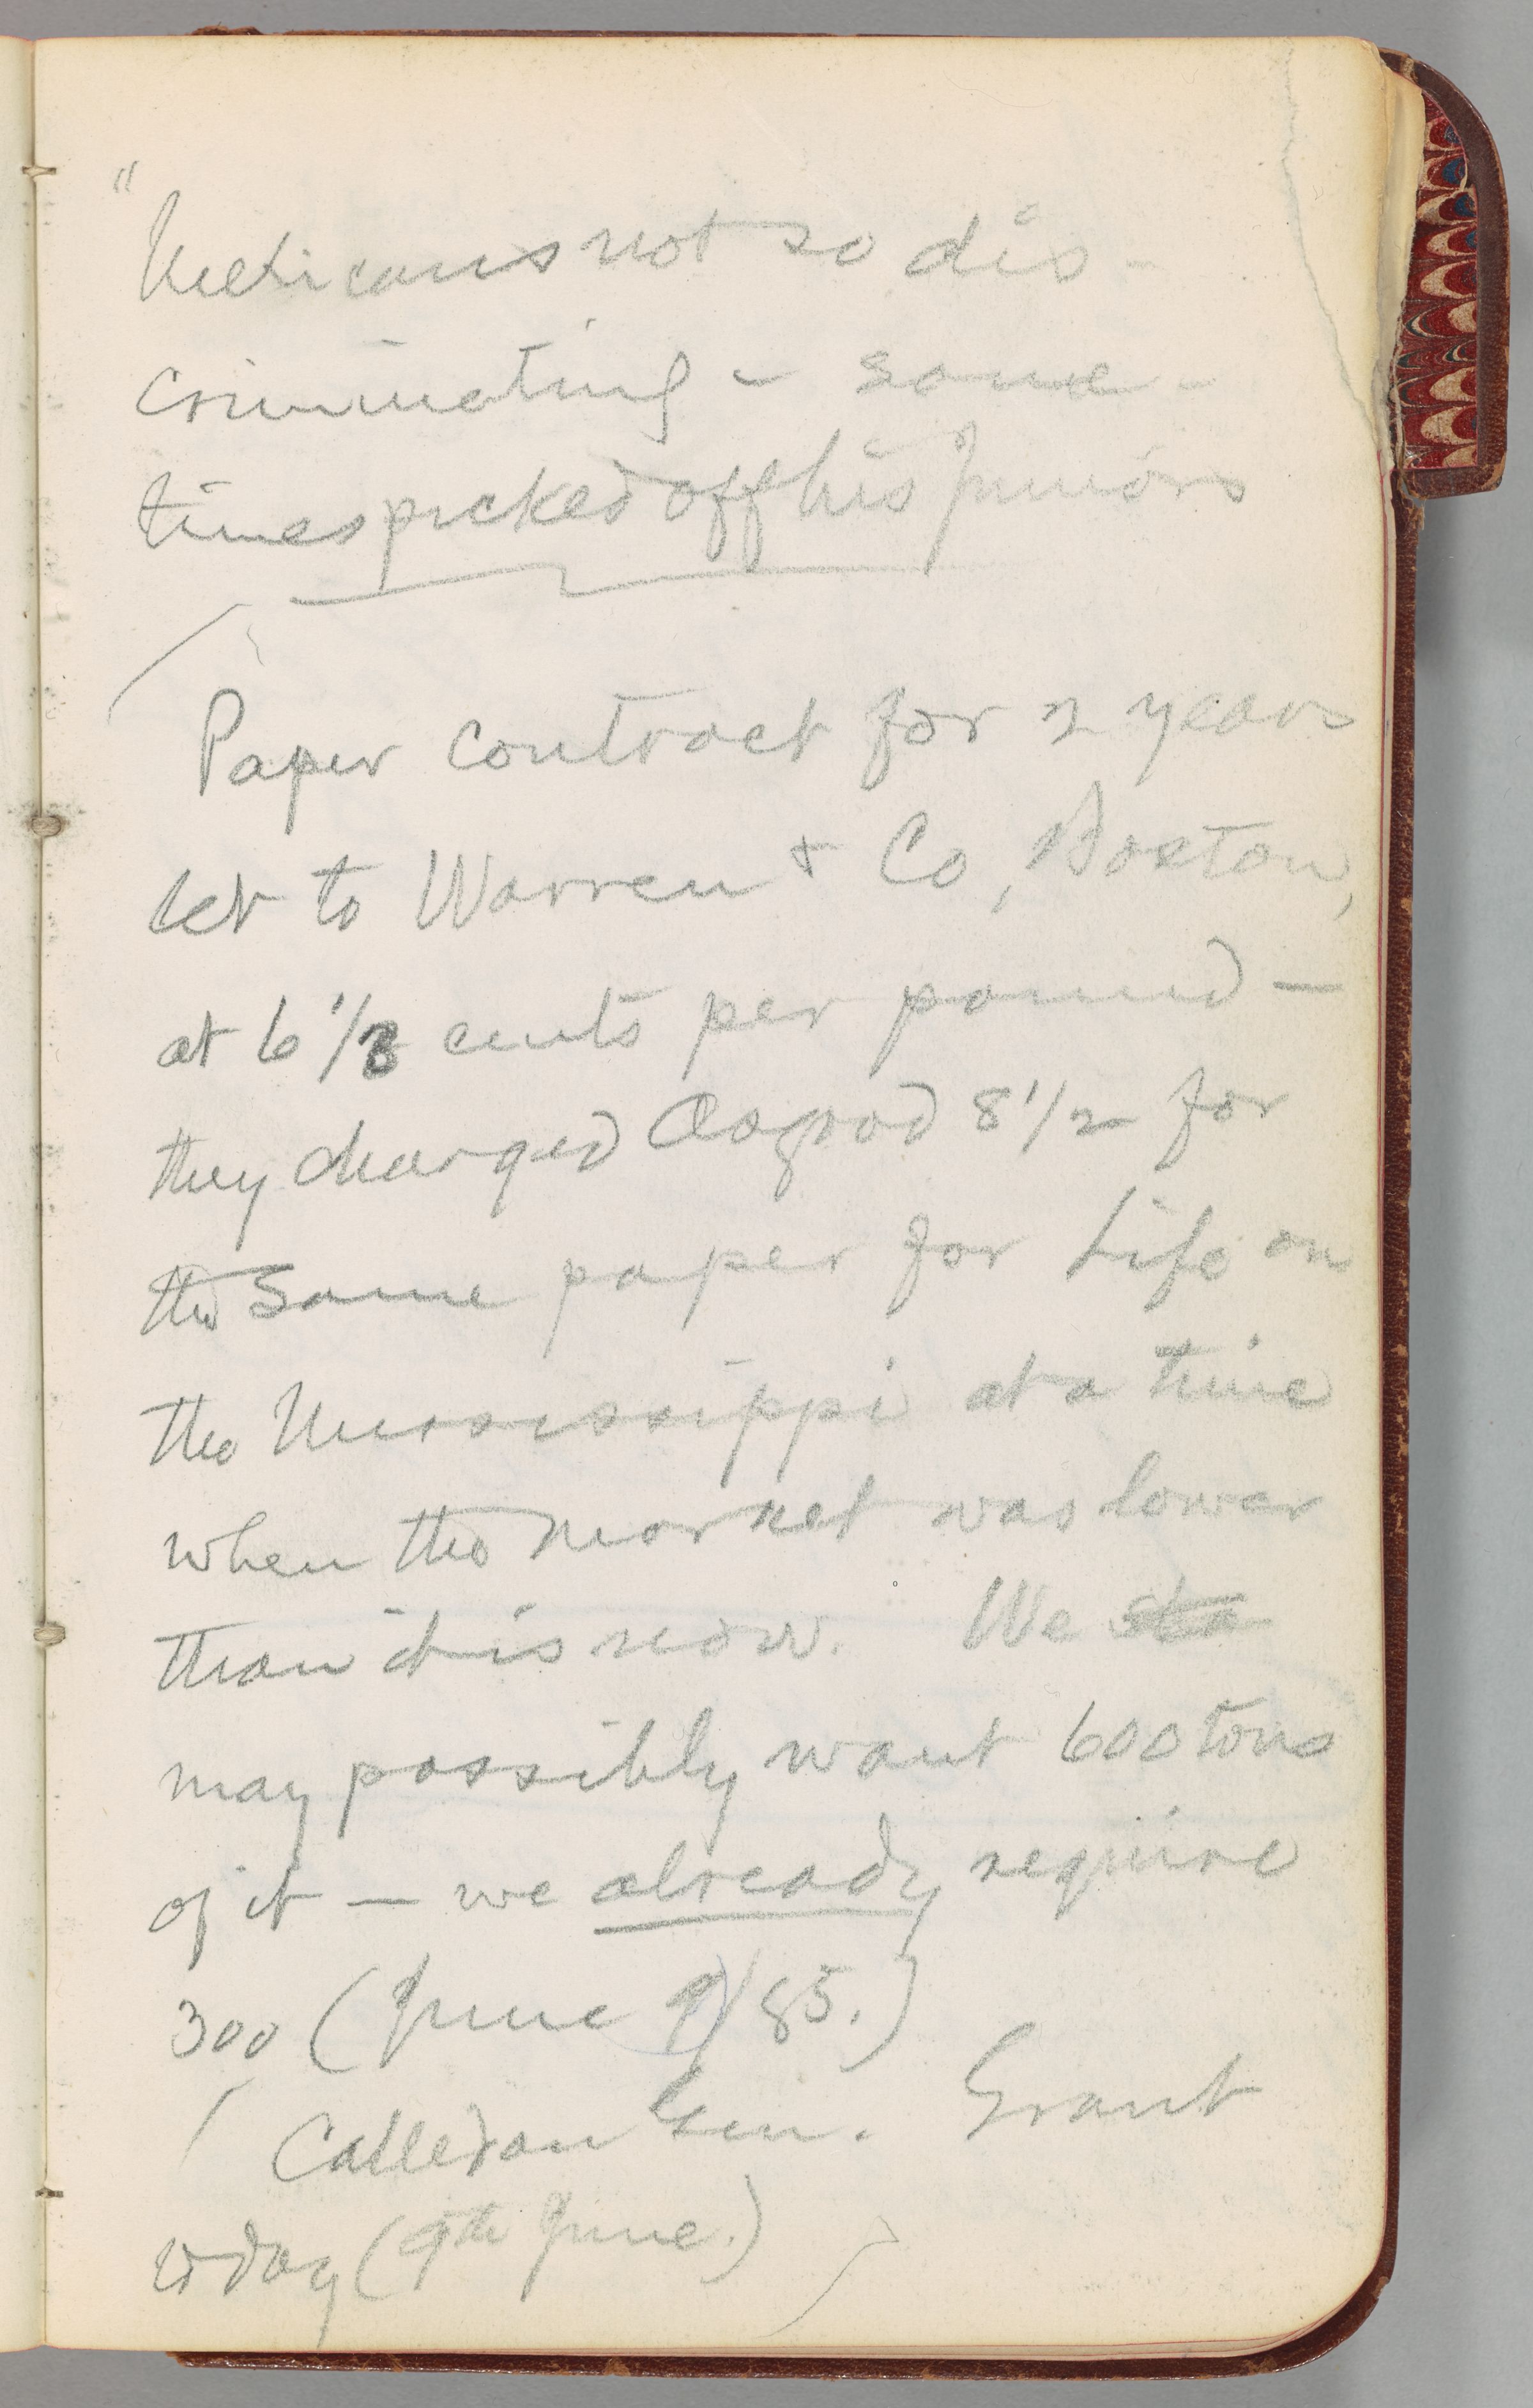 "
Mexicans not so dis-
criminating - some-
times picked off his juniors
Paper contract for 2 years
let to Warren & Co, Boston,
at 6 1/3 cents per pound —
they charged Osgood 8 1/2 for
the same paper for Life on
the Mississippi at a time
when the market was lower
than it is now. We sta
may possibly want 600 tons
of it — we already require
300 (June 9/85.)
Called on Gen. Grant
to day (9th June.)